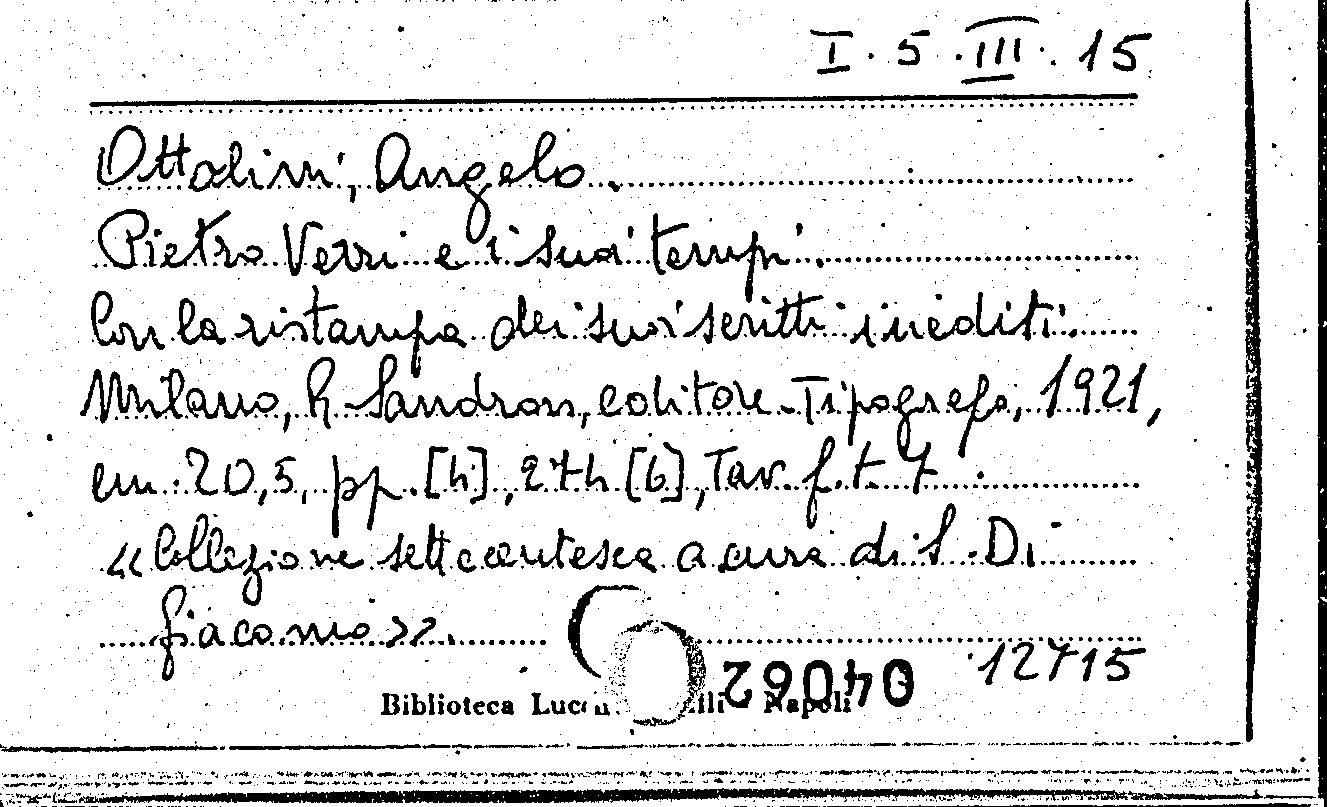 I. 5. III. 15
Ottolini, Angelo.
Pietro Verri e i suoi tempi.
Con la ristampa dei suoi scritti inediti.
Milano, R. Sandron, editore-Tipografo, 1921,
cm. 20,5, pp. [4], 274 [6], Tav. f.t. 7.
«Collezione settecentesca a cura di S. Di
Giacomo».
12715
Biblioteca Napoli
04062